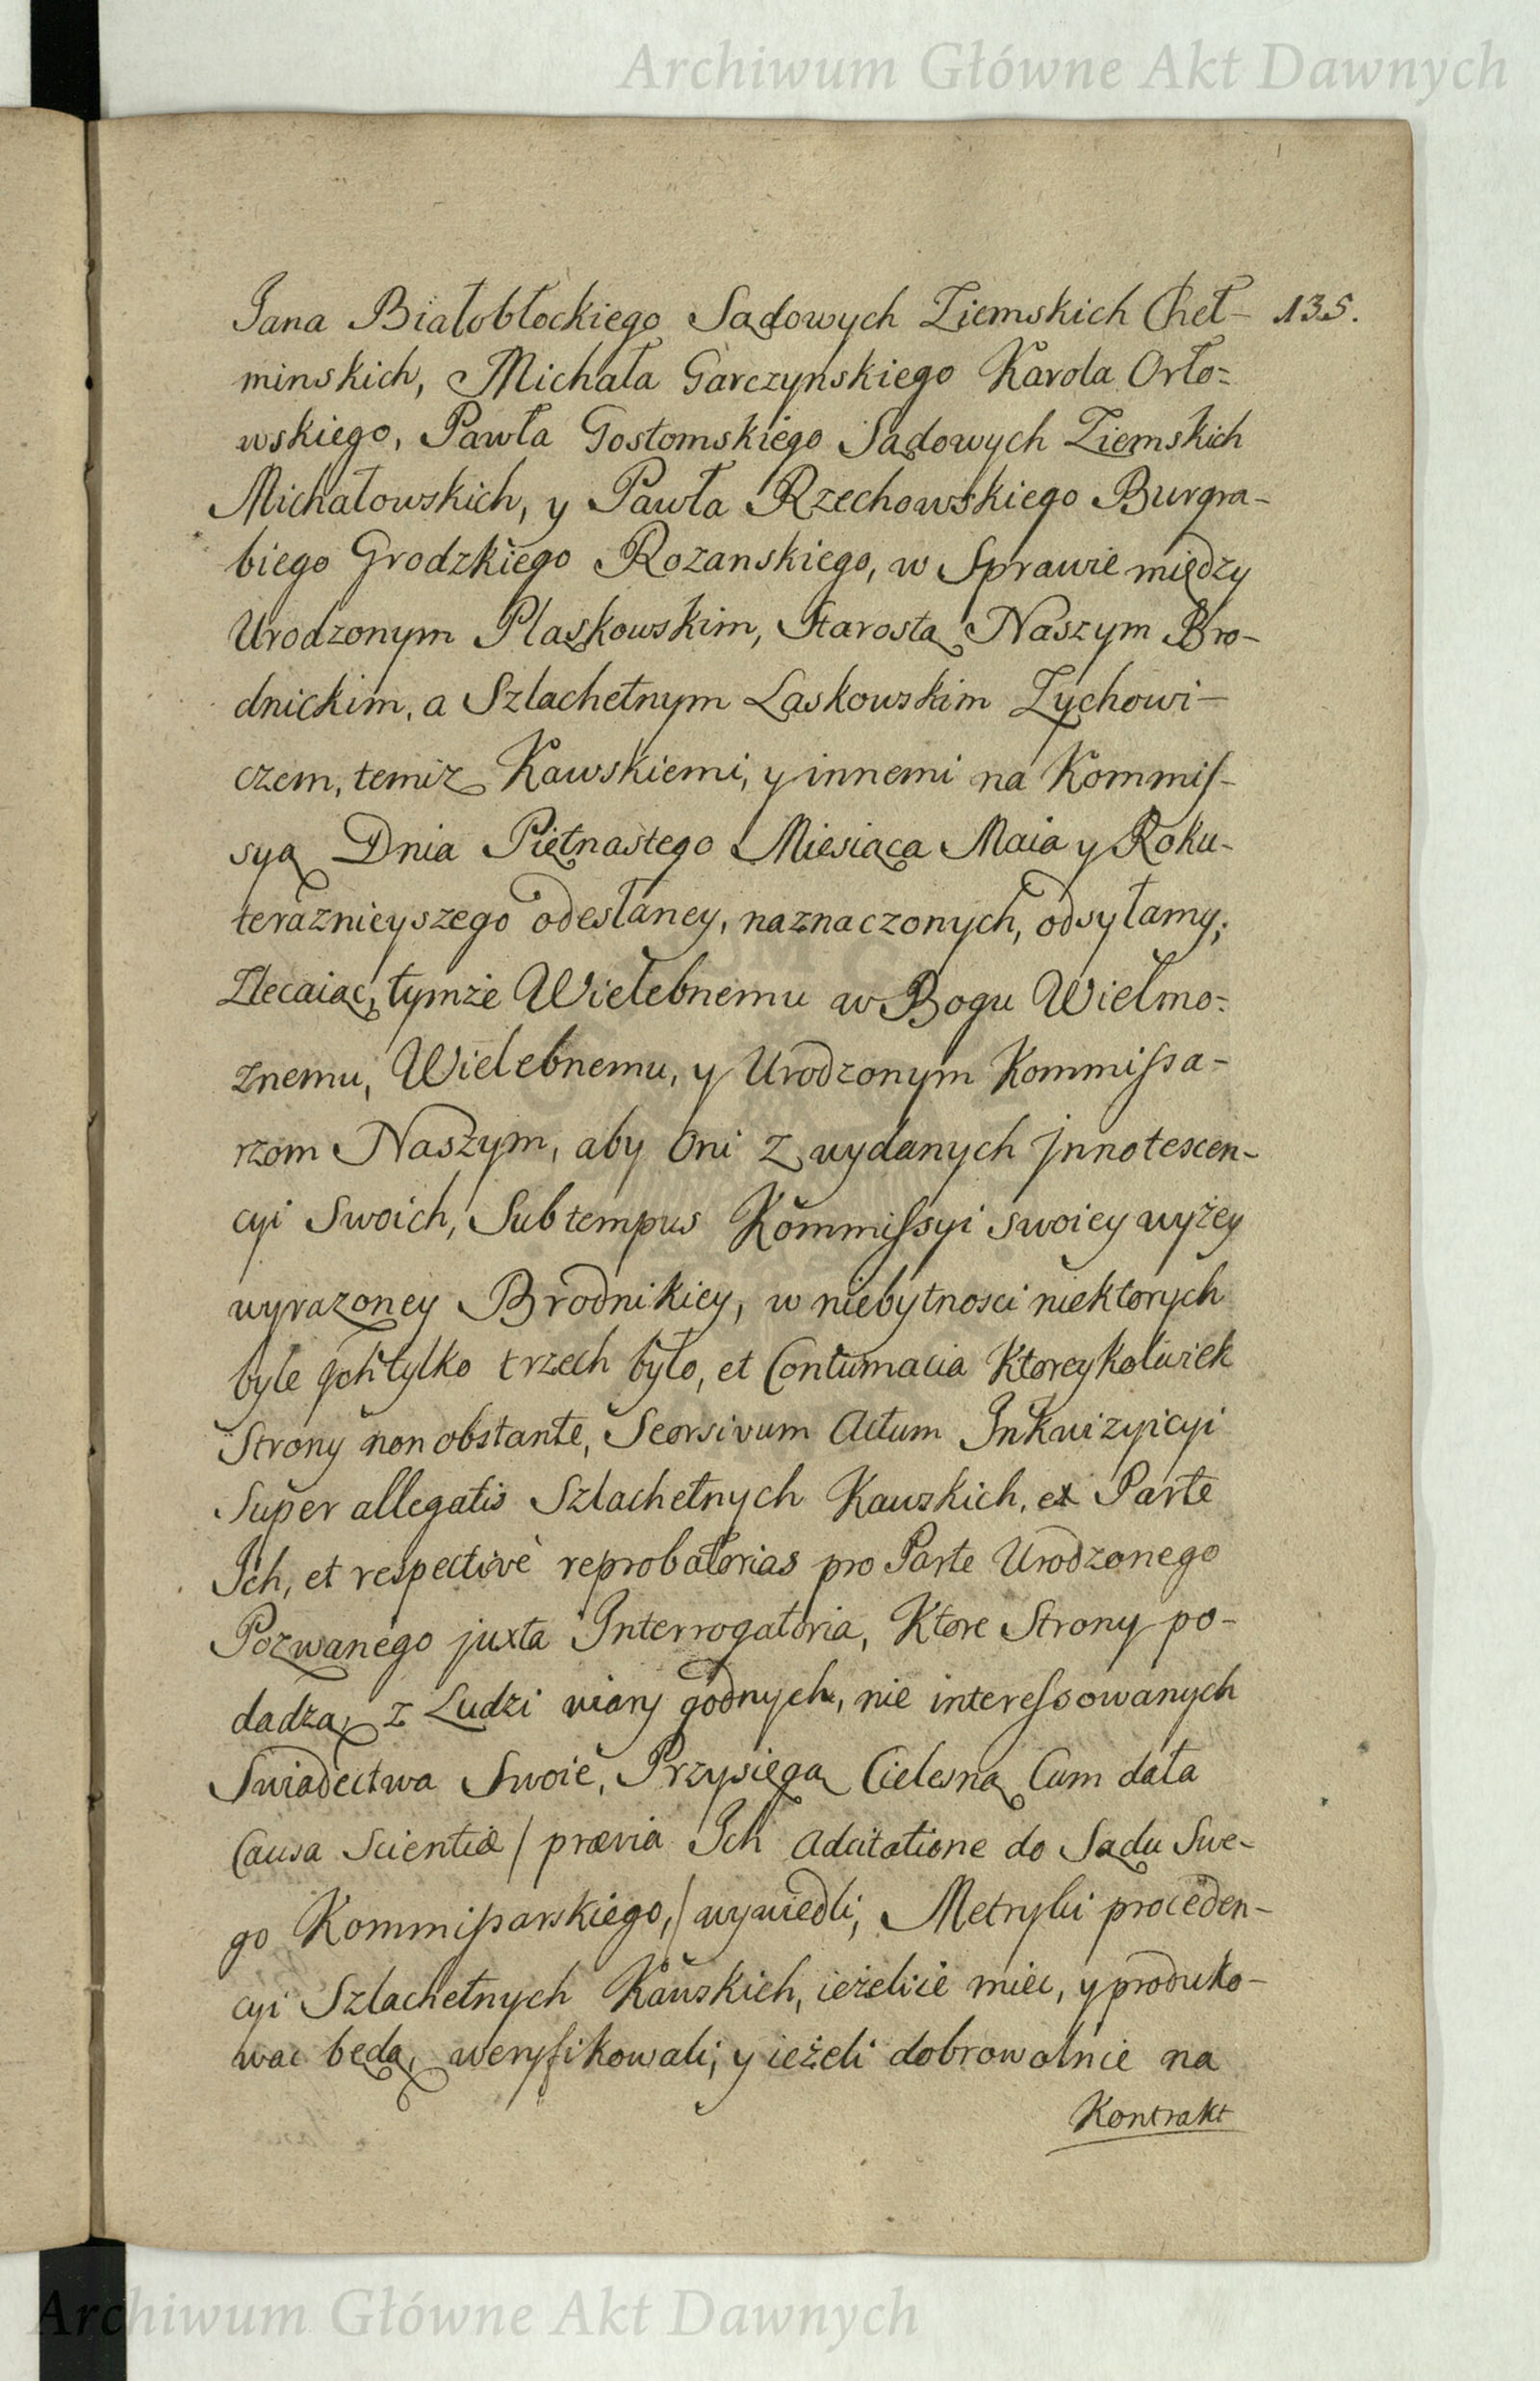 Archiwum Główne Akt Dawnych
135.
Jana Białobłockiego Sądowych Ziemskich Cheł-
minskich, Michała Garczynskiego Karola Orło=
wskiego, Pawła Gostomskiego Sądowych Ziemskich
Michałowskich, y Pawła Rzechowskiego Burgra-
biego Grodzkiego Rozanskiego, w Sprawie między
Urodzonym Pląskowskim, Starostą Naszym Bro-
dnickim, a Szlachetnym Laskowskim Zychowi-
czem, temiz Kawskiemi, y innemi na Kommis-
syą Dnia Piętnastego Miesiąca Maia y Roku-
teraznieyszego odesłaney, naznaczonych, odsyłamy;
Zlecaiąc, tymże Wielebnemu w Bogu Wielmo=
znemu, Wielebnemu, y Urodzonym Kommissa-
rzom Naszym, aby Oni z wydanych Jnnotescen-
cyi Swoich, Sub tempus Kommissyi swoiey wyżey
wyrazoney Brodnikiey, w niebytnosci niektorych
byle ich tylko trzech było, et Contumacia Ktoreykolwiek
Strony non obstante, Seorsivum Actum Inkwizyicyi
Super allegatis Szlachetnych Kawskich, ex Parte
Ich, et respectivè reprobatorias pro Parte Urodzonego
Pozwanego juxta Interrogatoria, Ktore Strony po-
dadzą, z Ludzi wiary godnych, nie interessowanych
Swiadectwa Swoie, Przysięgą Cielesną Cum data
Causa Scientiæ / prævia Ich Adcitatione do Sądu Swe-
go Kommissarskiego, / wywiedli, Metryki proceden-
cyi Szlachetnych Kawskich, ieżelicie miec, y produko-
wac będą, weryfikowali; y ieżeli dobrowolnie na
Kontrakt
Archiwum Główne Akt Dawnych